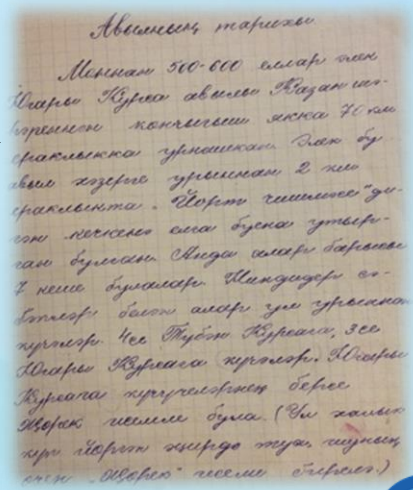 Авылның тарихы
Моннан 500-600 еллар элек
Югары Курса авылы Казан шә-
һәреннән көнчыгыш якка 70 км
ераклыкка урнашкан. Элек бу
авыл хәзерге урыннан 2 км
ераклыкта. "Йорт чишмәсе" ди-
гән кечкенә елга буена утыр-
ган булган. Анда алар барысы
7 кеше булалар. Ниндидер сә-
бәпләр белән алар ул урыннан
күчәләр. 4се Түбән Курсага, 3се
Югары Курсага күчәләр. Югары
Курсага күчүчеләрнең берсе
исемле була. (Ул халык
күп йөргән җирдә
өчен исеме бирелә.)